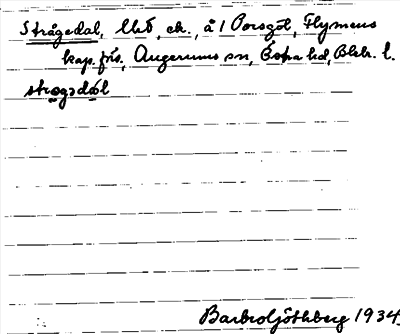 Strågedal, lht, ek., å 1 Porsgöl, Flymens
kap.förs., Augerums sn, Östra hd, Blek. l.
strǫgsdɑl
Barbro Ljöthberg 1934.